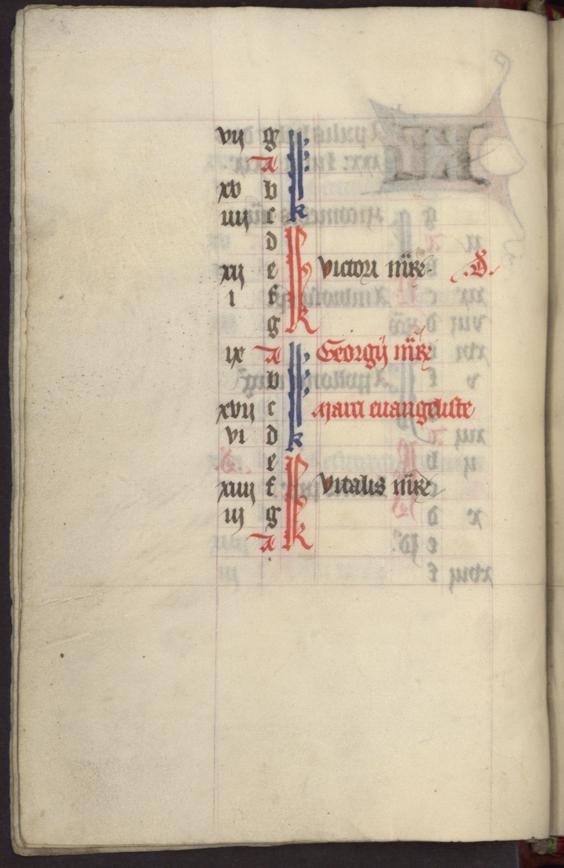 vij g
A
xv b
iiij c
d
xij e Victori m̅r̅ .D.
i f
g
ix A Georgij m̅r̅
b
xvij c Marci euangeliste
vi d
e
xiiij f Vitalis m̅r̅
iij g
A